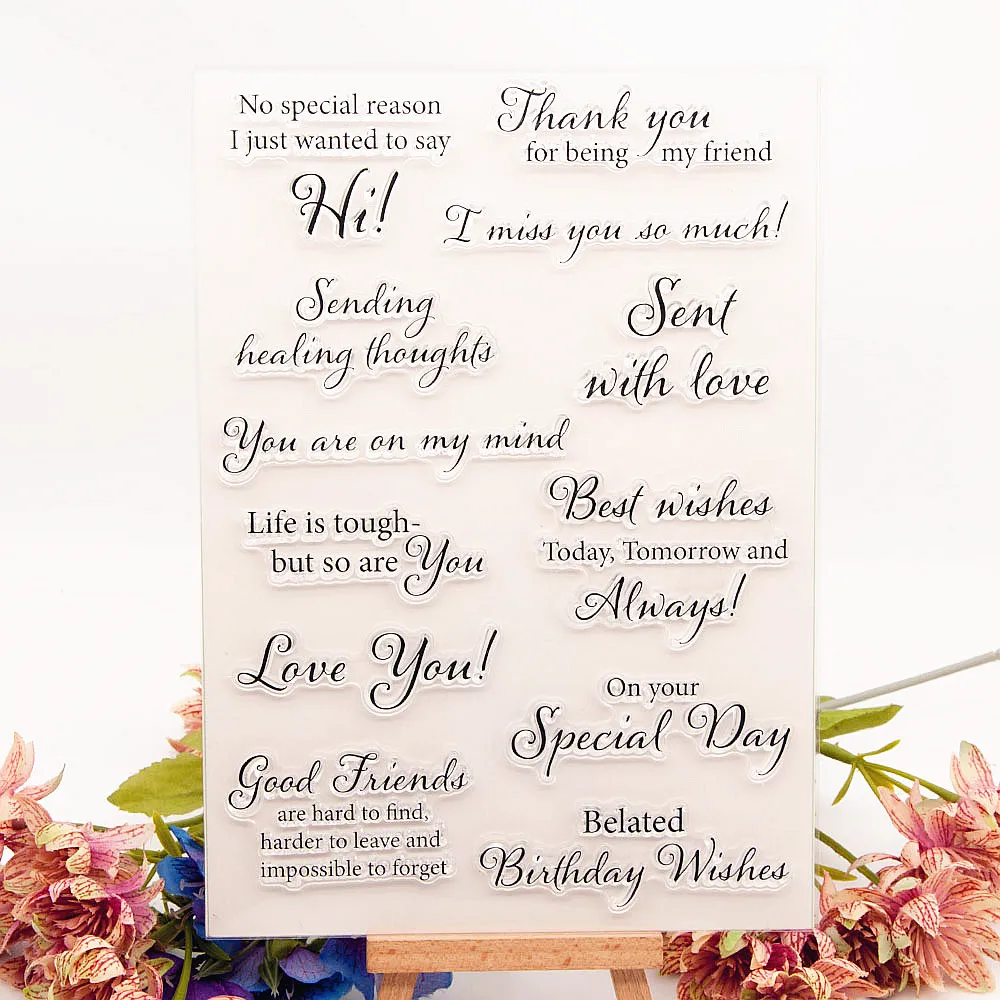 No special reason
I just wanted to say
Hi!
Thank you
for being my friend
I miss you so much!
Sending
healing thoughts
Sent
with love
You are on my mind
Best wishes
Today, Tomorrow and
Always!
Life is tough-
but so are You
Love You!
On your
Special Day
Good Friends
are hard to find,
harder to leave and
impossible to forget
Belated
Birthday Wishes